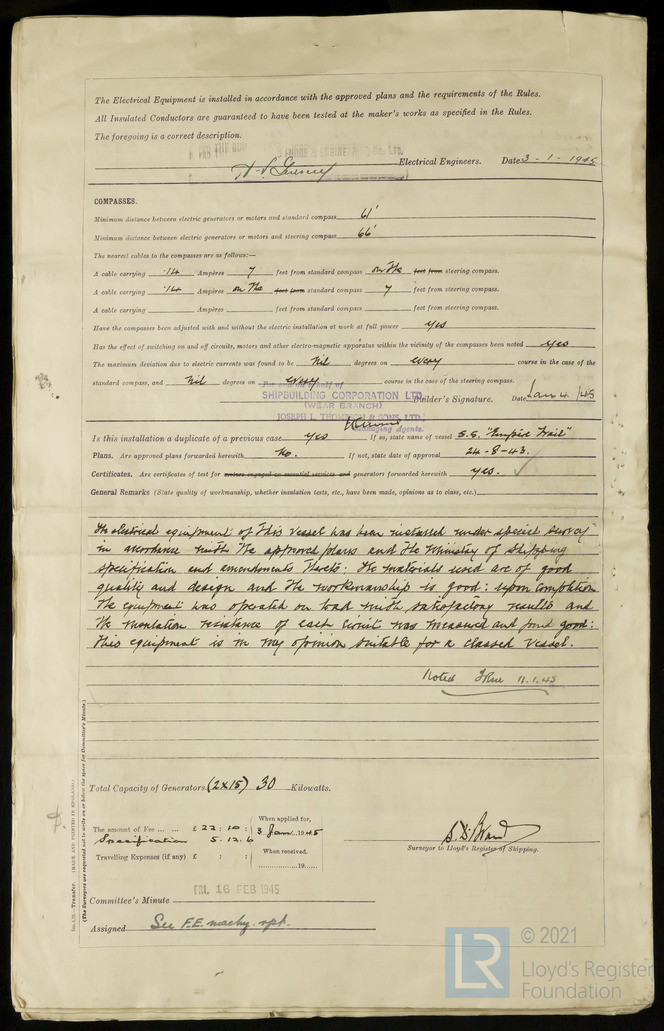 The Electrical Equipment is installed in accordance with the approved plans and the requirements of the Rules.
All Insulated Conductors are guaranteed to have been tested at the maker's works as specified in the Rules.
The foregoing is a correct description.
Electrical Engineers. Date 3-1-1945
COMPASSES.
Minimum distance between electric generators or motors and standard compass 61'
Minimum distance between electric generators or motors and steering compass 66'
The nearest cables to the compasses are as follows:—
A cable carrying .14 Ampères 7 feet from standard compass on the feet from steering compass.
A cable carrying .14 Ampères on the feet from standard compass 7 feet from steering compass.
A cable carrying Ampères feet from standard compass feet from steering compass.
Have the compasses been adjusted with and without the electric installation at work at full power yes
Has the effect of switching on and off circuits, motors and other electro-magnetic apparatus within the vicinity of the compasses been noted yes
The maximum deviation due to electric currents was found to be Nil degrees on every course in the case of the
standard compass, and nil degrees on every course in the case of the steering compass.
For and on behalf of
SHIPBUILDING CORPORATION LTD.
(WEAR BRANCH)
Builder's Signature. Date Jan 4/45
JOSEPH L. THOMPSON & SONS, LTD.
Managing Agents.
Is this installation a duplicate of a previous case yes If so, state name of vessel S.S. "Empire
Plans. Are approved plans forwarded herewith No. If not, state date of approval 24-8-43.
Certificates. Are certificates of test for motors engaged on essential services and generators forwarded herewith yes. ✓
General Remarks (State quality of workmanship, whether insulation tests, etc., have been made, opinions as to class, etc.)
The electrical equipment of this vessel has been installed under special survey
in accordance with the approved plans and the Ministry of Shipping
specification and amendments thereto: The materials used are of good
quality and design and the workmanship is good: upon completion
the equipment was operated on load with satisfactory results and
the insulation resistance of each circuit was measured and found good:
This equipment is in my opinion suitable for a classed vessel.
Noted 11.1.45
Total Capacity of Generators (2x15) 30 Kilowatts.
The amount of Fee ... ... £ 22 : 10 : When applied for, 3 Jan 1945
Specification 5.12.6
When received.
Travelling Expenses (if any) £ : : 19
Surveyor to Lloyd's Register of Shipping.
FRI. 16 FEB 1945
Committee's Minute
Assigned See F.E. machy. rpt.
(MADE AND PRINTED IN ENGLAND.)
(The Surveyors are requested not to write on or below the space for Committee's Minute.)
LR © 2021
Lloyd's Register
Foundation